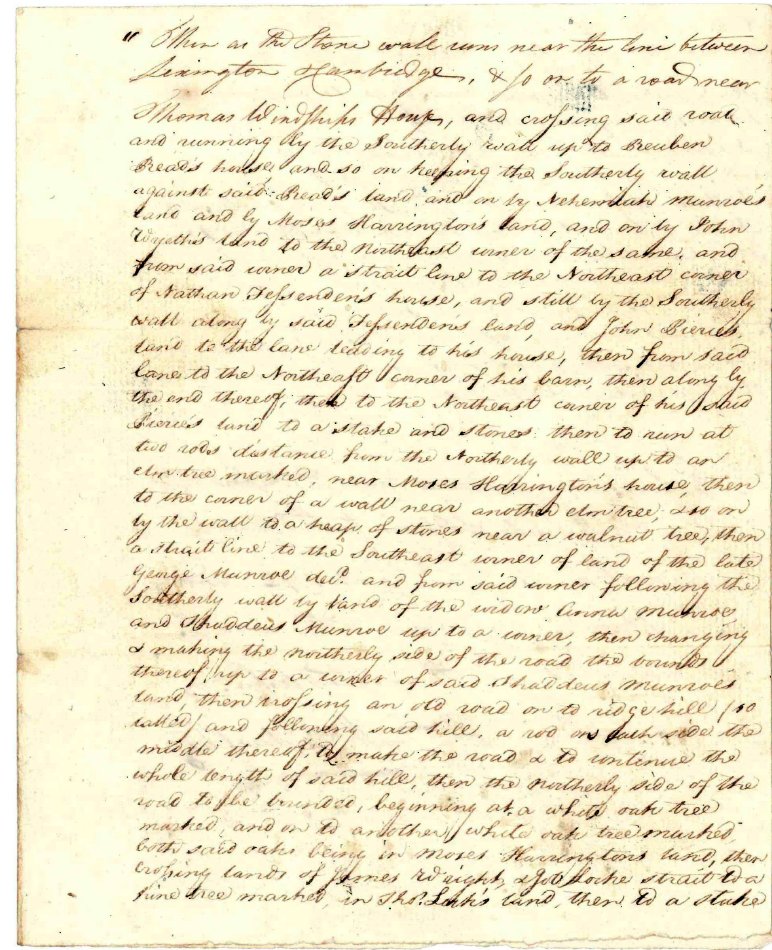 " Then as the Stone wall runs near the line between
Lexington & Cambridge, & so on to a road near
Thomas Windships House, and crossing said road
and running by the Southerly wall up to Reuben
Read's house, and so on keeping the Southerly wall
against said Read's land, and on by Nehemiah Munroe's
land and by Moses Harrington's land, and on by John
Wyeth's land to the Northeast corner of the same, and
from said corner a strait line to the Northeast corner
of Nathan Fessenden's house, and still by the Southerly
wall along by said Fessendens land, and John Pierce's
land to the lane leading to his house, then from said
lane to the Northeast corner of his barn, then along by
the end thereof, then to the Northeast corner of his said
Pierce's land to a stake and stones then to run at
two rods distance from the Northerly wall up to an
elm tree marked, near Moses Harrington's house, then
to the corner of a wall near another elm tree, & so on
by the wall to a heap of stones near a walnut tree, then
a strait line to the Southeast corner of land of the late
George Munroe decd. and from said corner following the
Southerly wall by land of the widow Anna Munroe
and Thaddeus Munroe up to a corner, then changing
& making the northerly side of the road the bounds
thereof up to a corner of said Thaddeus Munroe's
land, then crossing an old road on to ridge hill (so
called) and following said hill, a rod on each side the
middle thereof, to make the road & to continue the
whole length of said hill, then the northerly side of the
road to be bounded, beginning at a white oak tree
marked, and on to another white oak tree marked
both said oaks being in Moses Harrington's land, then
crossing lands of James Wright, & Job Locke strait to a
pine tree marked, in Thos. Lock's land, then to a stake